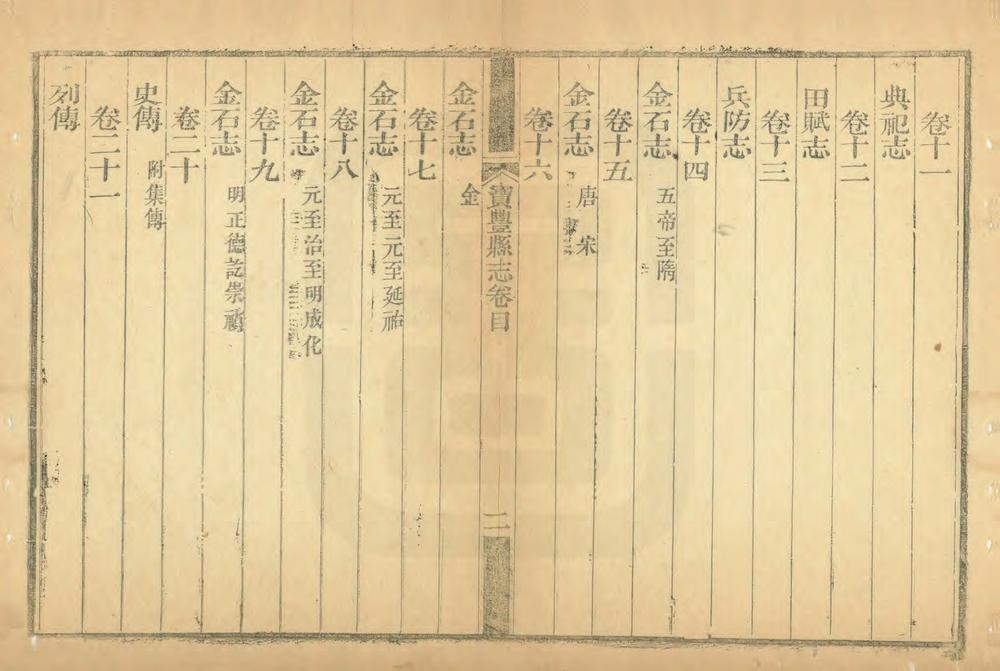 卷十一
典祀志
卷十二
田賦志
卷十三
兵防志
卷十四
金石志 五帝至隋
卷十五
金石志 唐 宋
卷十六
寶豐縣志卷目 二
金石志 金
卷十七
金石志 元至元至延祐
卷十八
金石志 元至治至明成化
卷十九
金石志 明正德訖崇禎
卷二十
史傳 附集傳
卷二十一
列傳